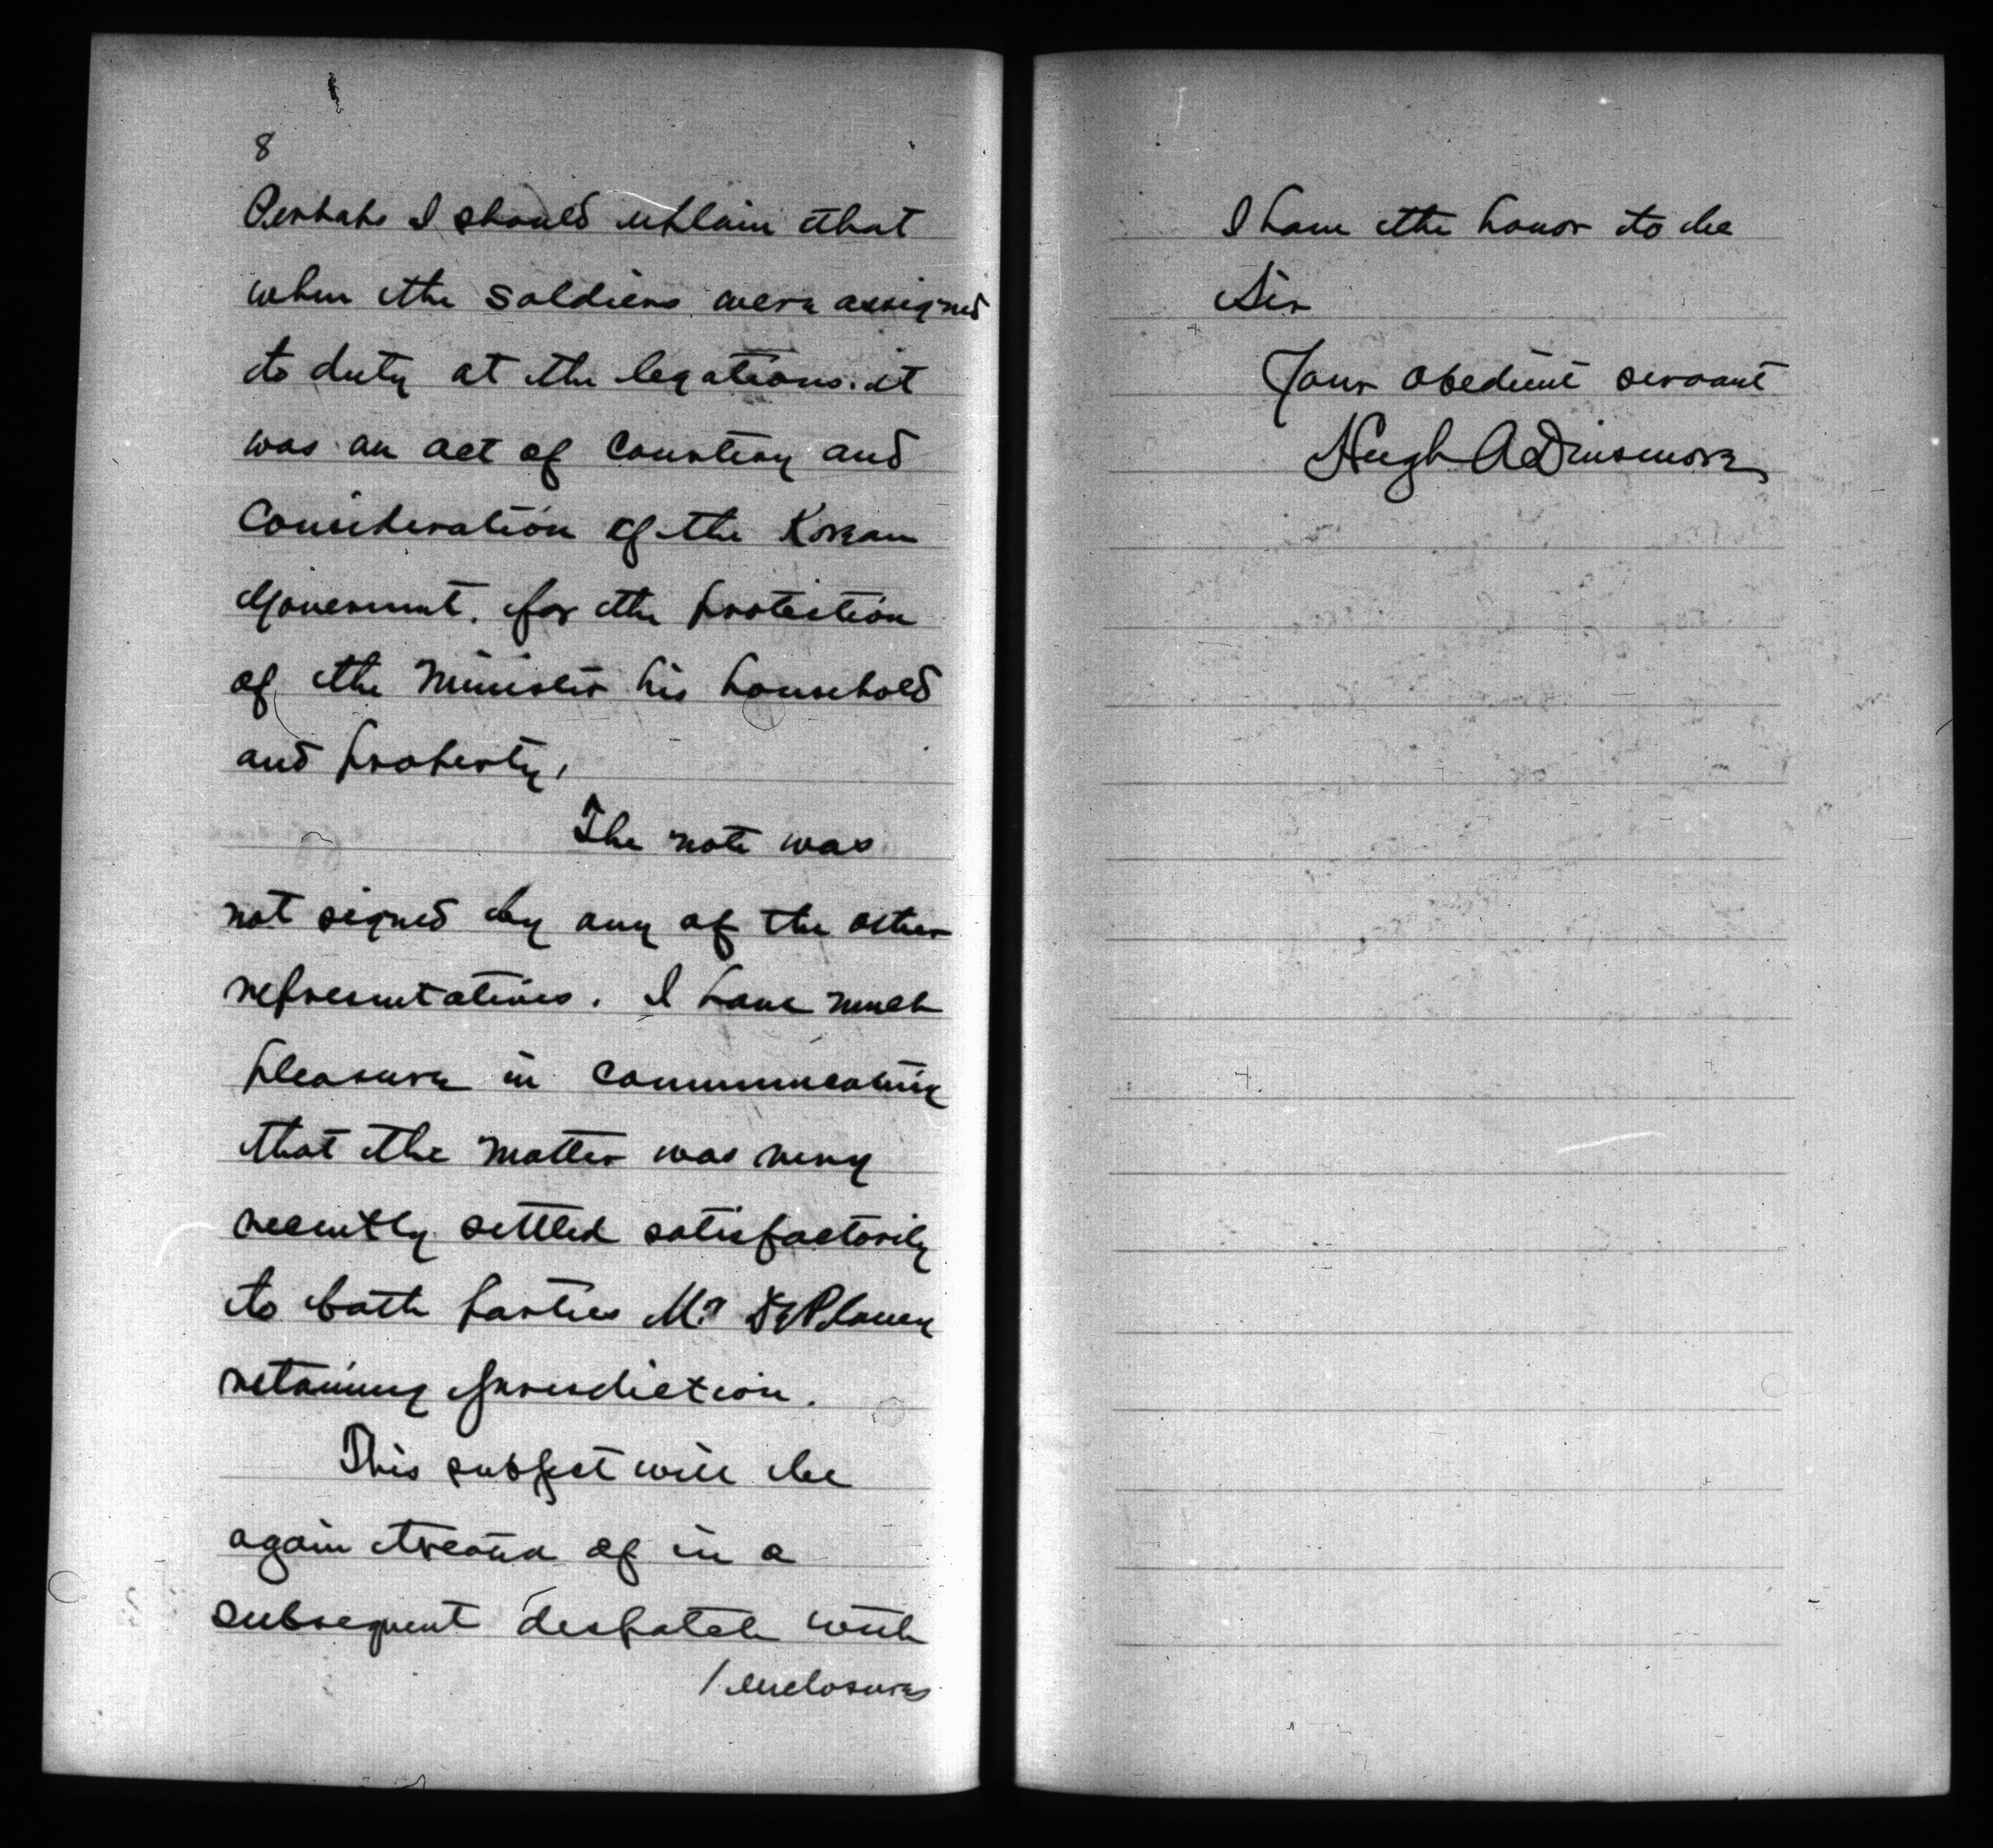 8
Perhaps I should explain that
when the soldiers were assigned
to duty at the legations. it
was an act of Courtesy and
Consideration of the Korean
Government, for the protection
of the Minister his household
and property,
The note was
not signed by any of the other
representatives. I have much
pleasure in communicating
that the matter was very
recently settled satisfactorily
to both parties Mr De Plancy
retaining jurisdiction.
This subject will be
again treated of in a
subsequent despatch with
1 enclosures
I have the honor to be
Sir
Your obedient servant
Hugh A Dinsmore